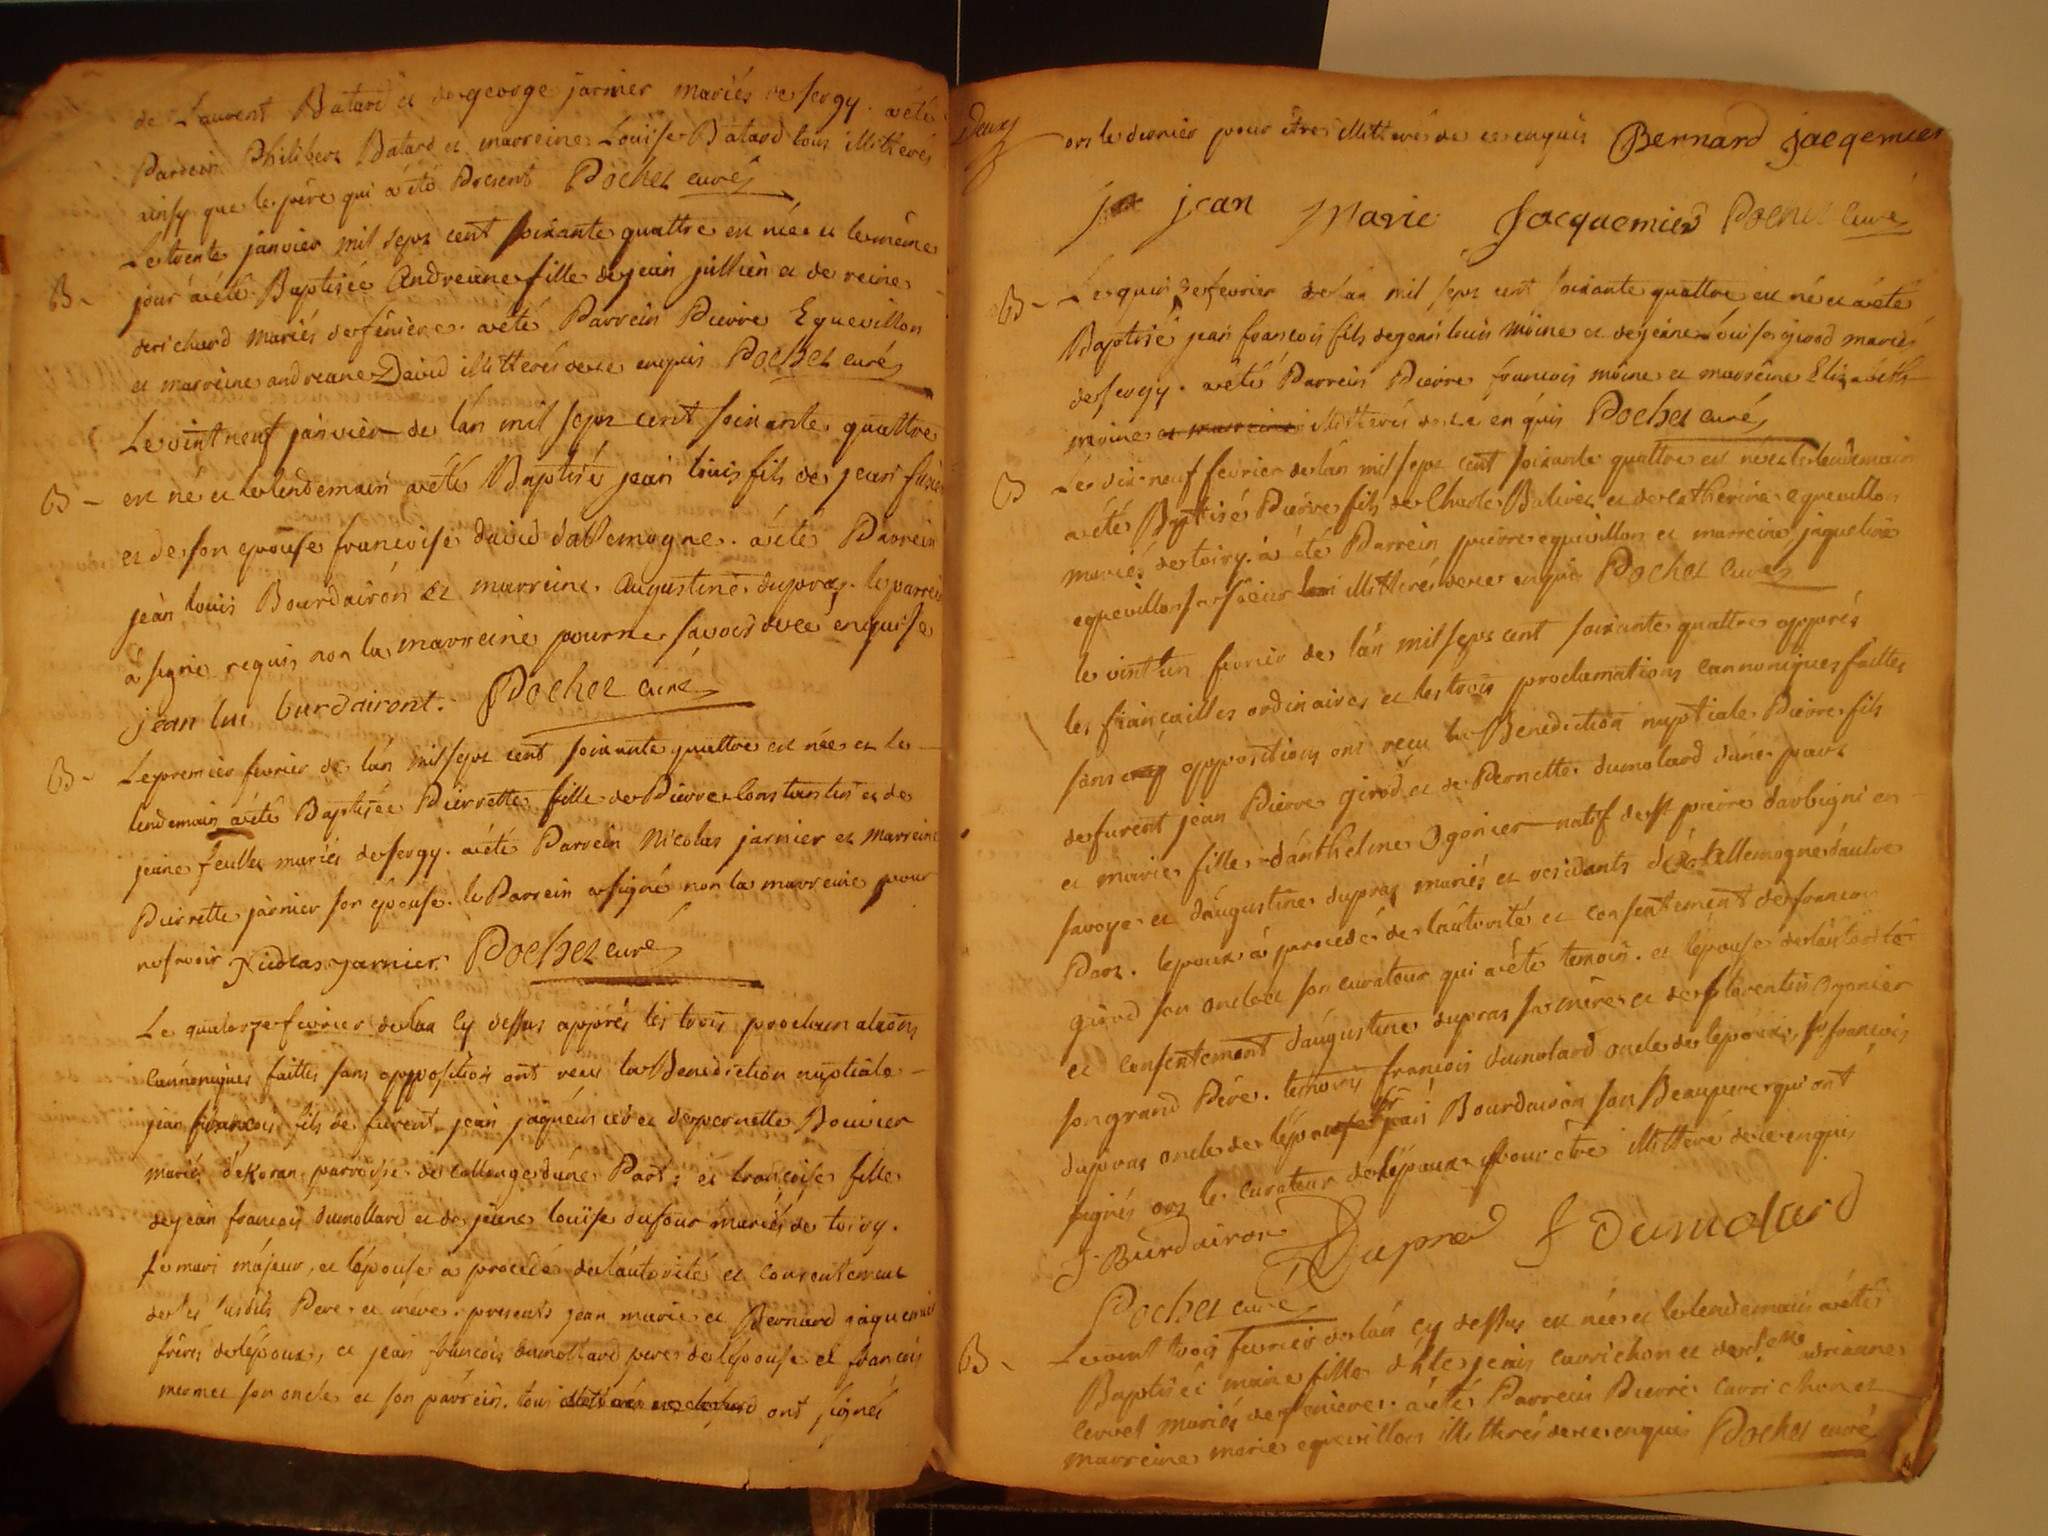 de Laurent Batard et de george jarnier mariés de sergy. a été
Parrein Philibert Batard et marreine Louise Batard tous illitterés
ainsy que le pére qui a été Present Pochet curé
Le trente janvier mil sept cent soixante quattre est née et le même
B- jour a été Baptisée Andreane fille de jean jullien et de reine
derichard mariés de feniere. a été Parrein Pierre Equevillon
et marreine andreane David illitterés de ce enquis Pochet curé
Le vint neuf janvier de lán mil sept cent soixante quattre
B- est né et le lendemain a été Baptisé jean louis fils de jean
et de son epouse francoise david dallemogne. a été Parrein
jean louis Bourdairon et marreine Augustine dupraz. le parrein
a signé requis non la marreine pour ne savoir de ce enquise
jean lui burdairont. Pochet curé
B- Le premier fevrier de lán mil sept cent soixante quattre est née et le
lendemain a été Baptisée Pierrette fille de Pierre Constantin et de
jeane feulla mariés de sergy. a été Parrein Nicolas jarnier et Marreine
Pierrette jarnier son épouse. le Parrein a signé non la marreine pour
ne savoir Nicolas garnier Pochet curé
Le quatorze fevrier de lan cy dessus apprés les trois proclamations
cannoniques faittes sans oppositions ont receu la Benediction nuptiale
jean francois fils de furent jean jaquemier et de pernette Bouvier
mariés dekoran parroisse de collonge dúne Part; et francoise fille
de jean francois dumollard et de jeane louise dufour mariés de toiry.
le mari májeur, et lépouse a procedé de láutorité et consentement
de ses susdits Pere et mére. presents jean marie et Bernard jaquemier
fréres de lépoux, et jean francois dumollard pere de lépouse et francois
mermet son oncle et son parrein. tous ont signés
Deux
ors le dernier pour être illitteré de ce enquis Bernard jacqemier
jean Marie Jacquemier Pochet Curé
B- Le quinze fevrier de lán mil sept cent soixante quattre est né et a été
Baptisé jean francois fils de jean louis moine et de jeane louise girod mariés
de sergy. a été Parrein Pierre francois moine et marreine Elizabeth
moine et marreine illitterés de ce enquis Pochet curé
B Le dix neuf fevrier de lán mil sept cent soixante quattre est né et le lendemain
a été Baptisé Pierre fils de Charle Balivet et de catherine equevillon
mariés de toiry. a été Parrein pierre equevillon et marreine jaqueline
equevillon sa soeur illitterés de ce enquis Pochet curé
le vint un fevrier de lán mil sept cent soixante quattre apprés
les fiancailles ordinaires et les trois proclamations cannoniques faittes
sans oppositions ont receu la Benediction nuptiale Pierre fils
de furent jean Pierre girod et de Pernette dumolard dúne part
et marie fille dánthelme Ogonier natif de st pierre dárbigni en
savoye et dáugustine dupraz mariés et residants dállemogne dáutre
Part. lepoux a procedé de láutorité et consentement de francois
girod son oncle et son curateur qui a été temoin. et lépouse de láutorité
et consentement dáugustine dupras sa mére et de florentin Ogonier
son grand Pére. temoins francois dumolard oncle de lépoux, sr francois
dupras oncle de lépouse sr jean Bourdairon son Beaupere qui ont
signés ors le curateur de lépoux pour être illitteré de ce enquis
J Burdairon Dupra f Dumolard
Pochet curé
B- Le vint trois fevrier de lán cy dessus est née et le lendemain a été
Baptisée marie fille de jean carrichon et de adrianne
carrel mariés de feniere. a été Parrein Pierre carrichon et
marreine marie equevillon illitterés de ce enquis Pochet curé